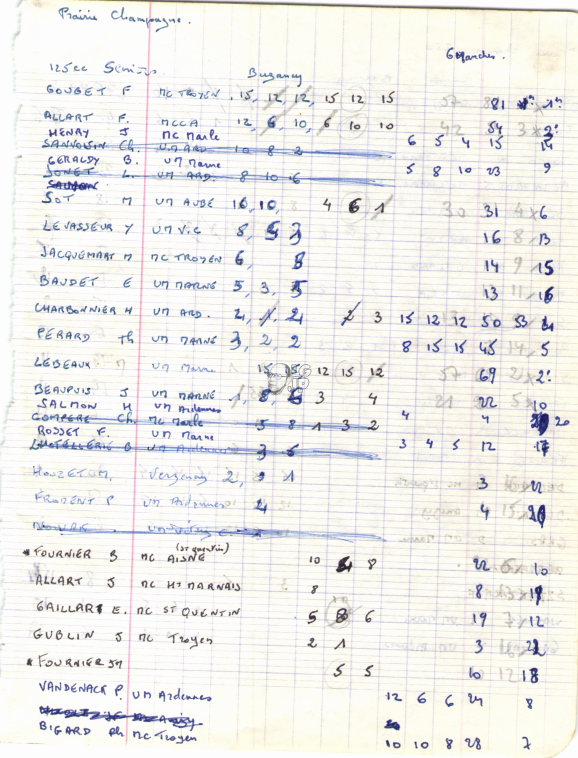 Prairie Champagne.
6 manches.
125cc Séniors Buzancy
GOUGET F MC TROYEN 15, 12, 12, 15 12 15 81 1er
ALLART F. MCCA 12, 6, 10, 6 10 10 54 3
HENRY J MC Marle 6 5 4 15 14
SANVOISIN Ch. UM ARD 10 8 2
GERALDY B. UM Marne 5 8 10 23 9
JONET L. UM ARD. 8 10 6
SOT M UM AUBE 16, 10, 4 6 1 31 6
LEVASSEUR Y UM VIC 8, 5 3 16 13
JACQUEMART M MC TROYEN 6, 8 14 15
BAUDET E UM MARNE 5, 3, 5 13 16
CHARBONNIER H UM ARD. 2, 1, 2 2 3 15 12 12 50 53 4
PERARD Th UM MARNE 3, 2, 2 8 15 15 45 5
LEBEAUX M UM Marne 15 15 12 15 12 69 2e
BEAUPUIS J UM MARNE 1, 8, 6 3 4 22 10
SALMON H UM Ardennes 4 4 20
COMPERE Ch. MC Marle 5 8 1 3 2
ROSSET F. UM Marne 3 4 5 12 17
LHOTELLERIE B UM Ardennes 3 6
HOUZET M. Verzenay 2, 1 3 22
FROMENT P UM Ardennes 4 4 20
NOVAK
* FOURNIER B MC AISNE (St Quentin) 10 4 8 22 10
ALLART J MC Hte MARNAIS 8 8 19
GAILLART E. MC ST QUENTIN 5 8 6 19 12
GUBLIN J MC Troyen 2 1 3 22
* FOURNIER JM 5 5 10 18
VANDENACK P. UM Ardennes 12 6 6 24 8
BIGARD Ph MC Troyen 10 10 8 28 7